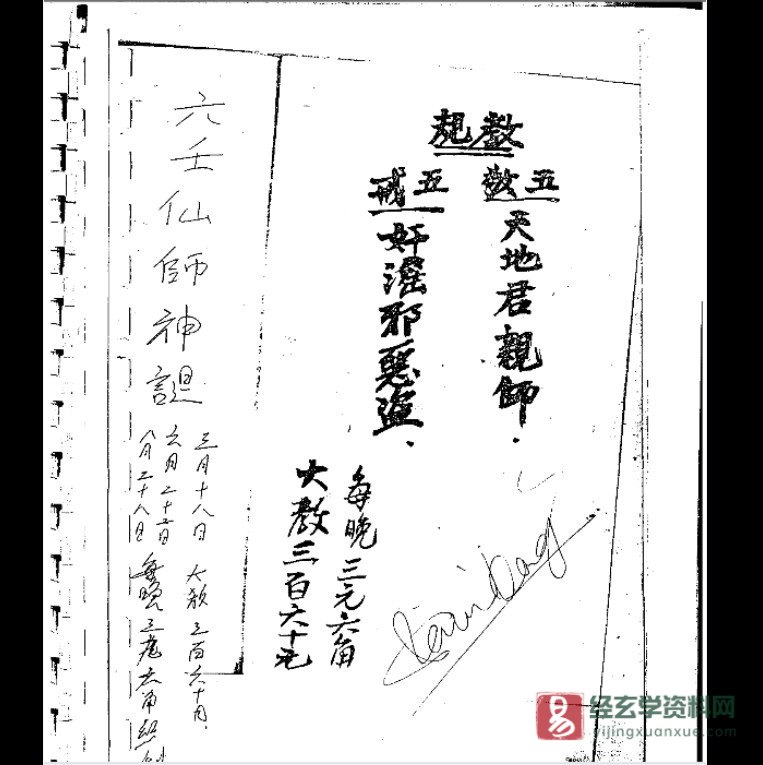 教規
五敬
天地君親師．
五戒
奸滛邪惡盜．
每晚三元六角
大教三百六十元
六壬仙師神誕
三月十八日
六月二十
八月二十八日
三百六十
每晚三
易
经玄学资料网
yijingxuanxue.com